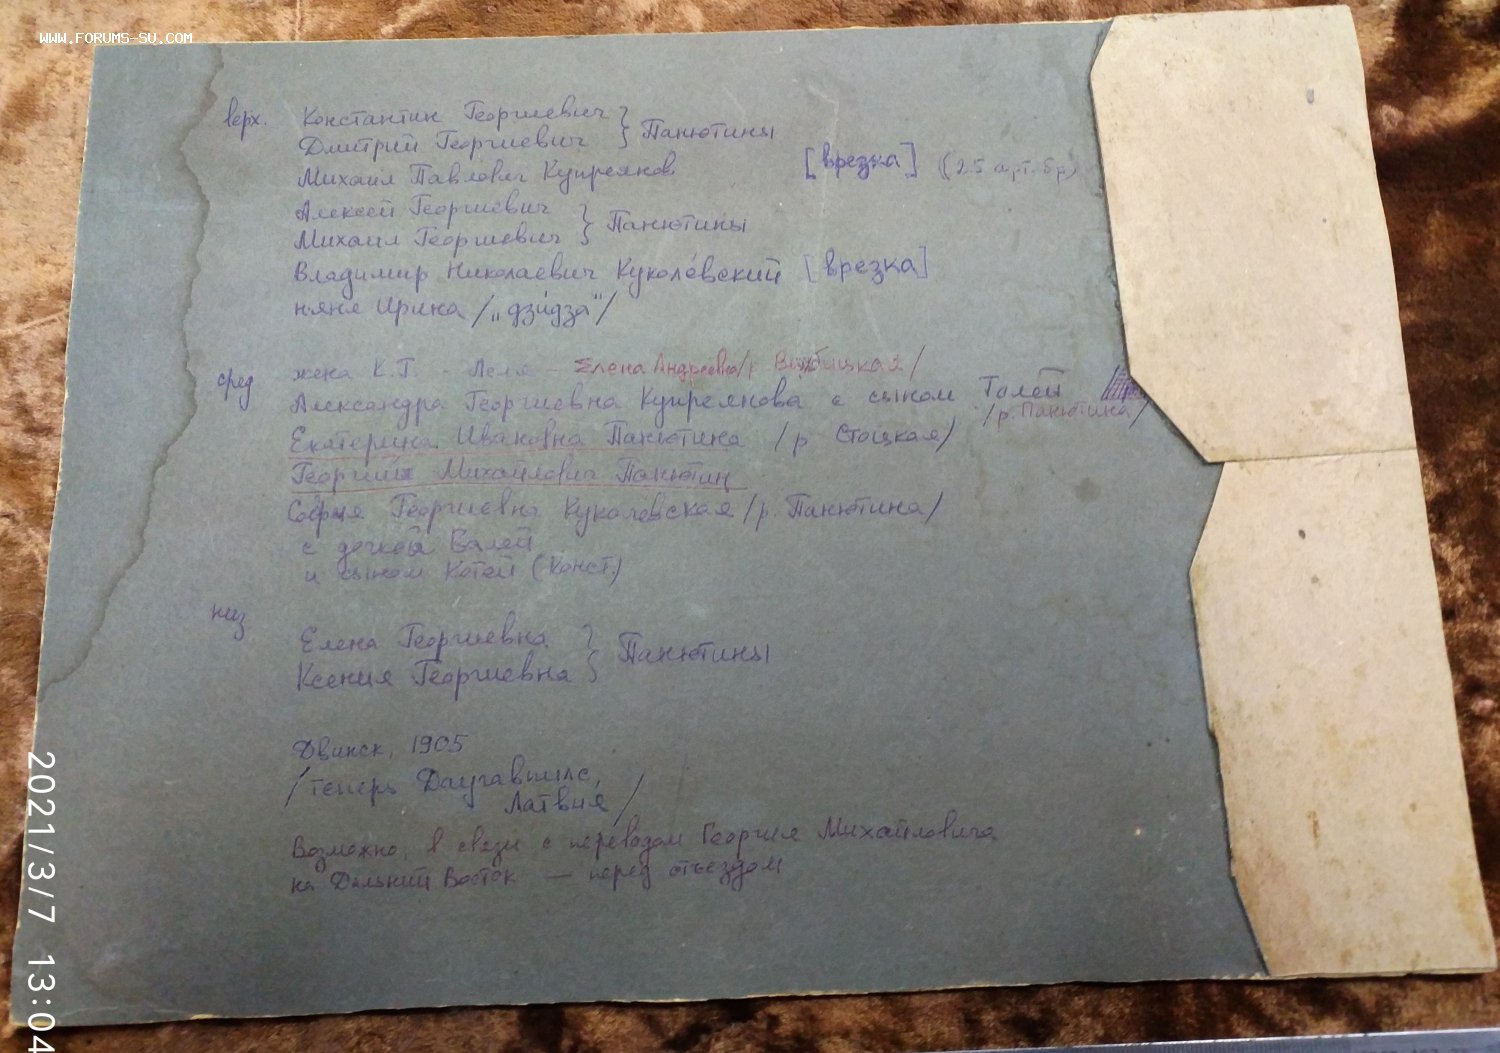 WWW.FORUMS-SU.COM
верх. Константин Георгиевич } Панютины
Дмитрий Георгиевич
Михаил Павлович Купреянов [врезка] (25 арт. бр)
Алексей Георгиевич } Панютины
Михаил Георгиевич
Владимир Николаевич Куколе́вский [врезка]
няня Ирина /„дзи́дза“/
сред жена К.Г. - Леля - Елена Андреевна /р
Александра Георгиевна Купреянова с сыном Толей
/р. Панютина/
Екатерина Ивановна Панютина /р Стоцкая)
Георгий Михайлович Панютин
Софья Георгиевна Куколевская /р. Панютина/
с дочкой Валей
и сыном Котей (Конст.)
низ
Елена Георгиевна } Панютины
Ксения Георгиевна
Двинск, 1905
/теперь Даугавпилс,
Латвия/
Возможно, в связи с переводом Георгия Михайловича
на Дальний Восток — перед отъездом
2021/3/7 13:04